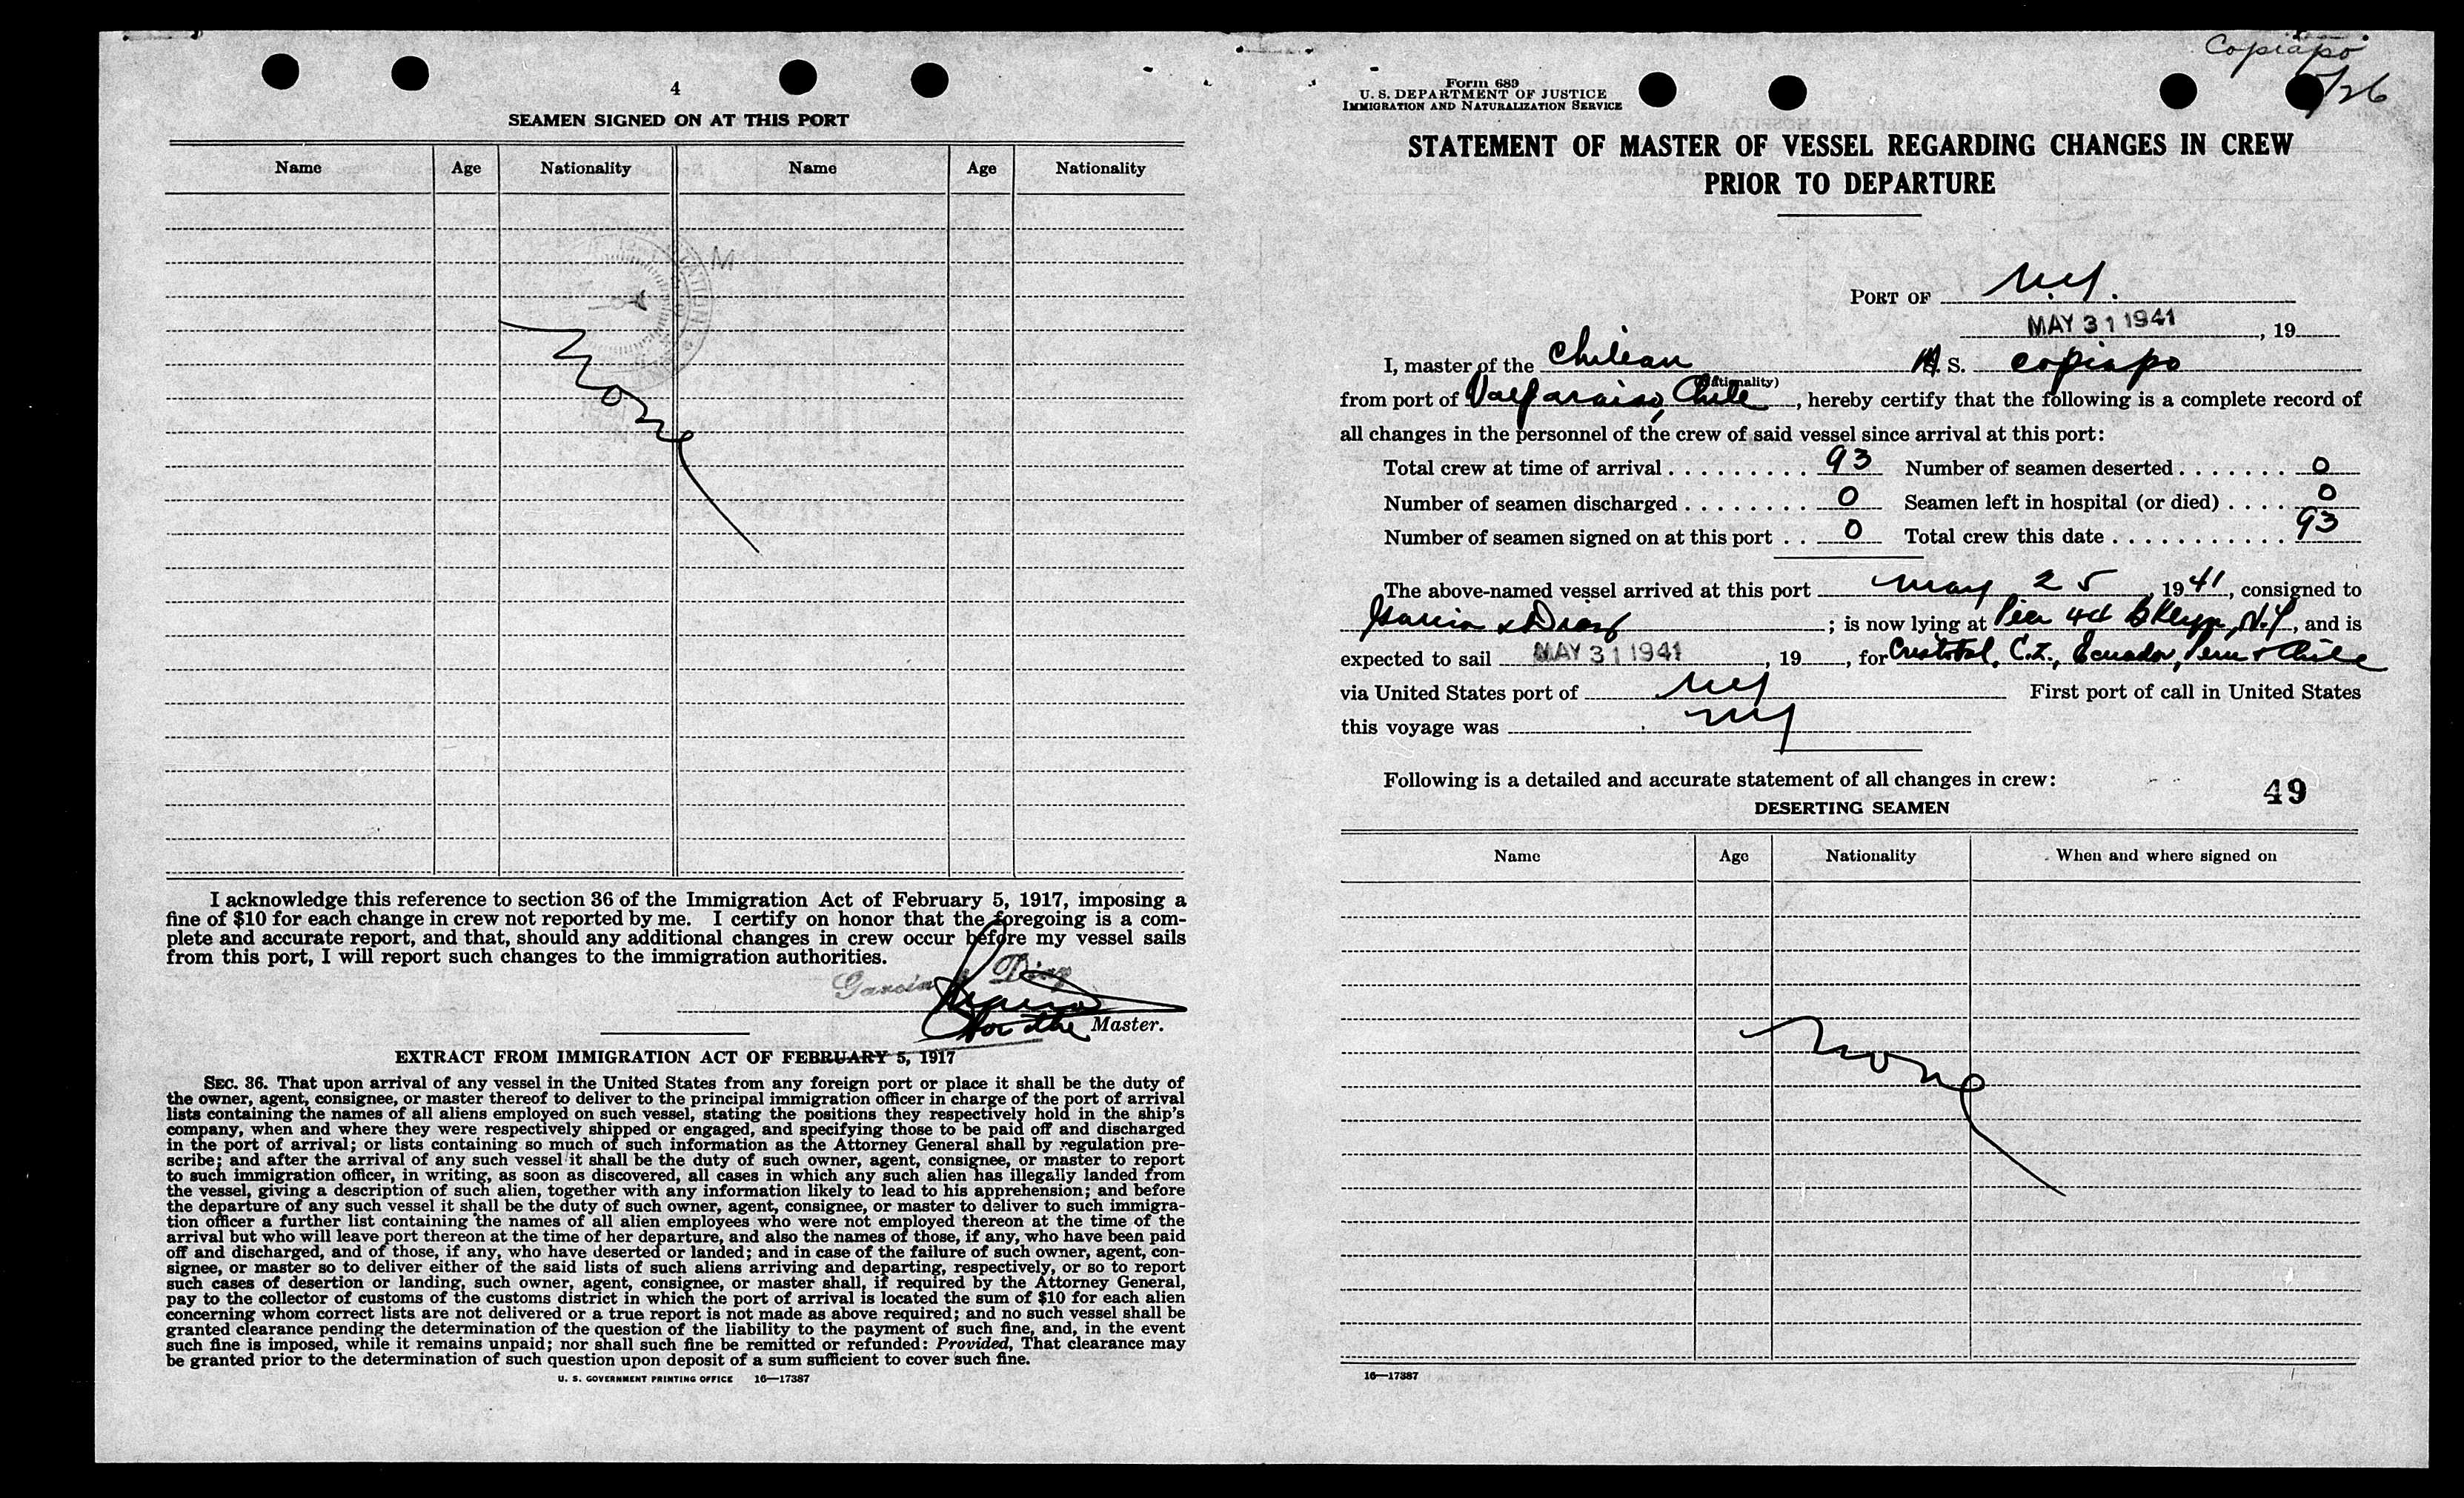 4
SEAMEN SIGNED ON AT THIS PORT
Name Age Nationality Name Age Nationality
None
I acknowledge this reference to section 36 of the Immigration Act of February 5, 1917, imposing a
fine of $10 for each change in crew not reported by me. I certify on honor that the foregoing is a com-
plete and accurate report, and that, should any additional changes in crew occur before my vessel sails
from this port, I will report such changes to the immigration authorities.
Garcia & Diaz
for the Master.
EXTRACT FROM IMMIGRATION ACT OF FEBRUARY 5, 1917
SEC. 36. That upon arrival of any vessel in the United States from any foreign port or place it shall be the duty of
the owner, agent, consignee, or master thereof to deliver to the principal immigration officer in charge of the port of arrival
lists containing the names of all aliens employed on such vessel, stating the positions they respectively hold in the ship's
company, when and where they were respectively shipped or engaged, and specifying those to be paid off and discharged
in the port of arrival; or lists containing so much of such information as the Attorney General shall by regulation pre-
scribe; and after the arrival of any such vessel it shall be the duty of such owner, agent, consignee, or master to report
to such immigration officer, in writing, as soon as discovered, all cases in which any such alien has illegally landed from
the vessel, giving a description of such alien, together with any information likely to lead to his apprehension; and before
the departure of any such vessel it shall be the duty of such owner, agent, consignee, or master to deliver to such immigra-
tion officer a further list containing the names of all alien employees who were not employed thereon at the time of the
arrival but who will leave port thereon at the time of her departure, and also the names of those, if any, who have been paid
off and discharged, and of those, if any, who have deserted or landed; and in case of the failure of such owner, agent, con-
signee, or master so to deliver either of the said lists of such aliens arriving and departing, respectively, or so to report
such cases of desertion or landing, such owner, agent, consignee, or master shall, if required by the Attorney General,
pay to the collector of customs of the customs district in which the port of arrival is located the sum of $10 for each alien
concerning whom correct lists are not delivered or a true report is not made as above required; and no such vessel shall be
granted clearance pending the determination of the question of the liability to the payment of such fine, and, in the event
such fine is imposed, while it remains unpaid; nor shall such fine be remitted or refunded: Provided, That clearance may
be granted prior to the determination of such question upon deposit of a sum sufficient to cover such fine.
U. S. GOVERNMENT PRINTING OFFICE 16—17387
Copiapo
5/26
Form 689
U. S. DEPARTMENT OF JUSTICE
IMMIGRATION AND NATURALIZATION SERVICE
STATEMENT OF MASTER OF VESSEL REGARDING CHANGES IN CREW
PRIOR TO DEPARTURE
PORT OF N.Y.
MAY 31 1941, 19
I, master of the Chilean M. S. Copiapo
(Nationality)
from port of Valparaiso, Chile, hereby certify that the following is a complete record of
all changes in the personnel of the crew of said vessel since arrival at this port:
Total crew at time of arrival . . . . . . . . . 93 Number of seamen deserted . . . . . . . 0
Number of seamen discharged . . . . . . . . 0 Seamen left in hospital (or died) . . . . 0
Number of seamen signed on at this port . . 0 Total crew this date . . . . . . . . . . . 93
The above-named vessel arrived at this port May 25, 1941, consigned to
Garcia & Diaz; is now lying at Pier 44 Bklyn, N.Y., and is
expected to sail MAY 31 1941, 19, for Cristobal, C.Z., Ecuador, Peru & Chile
via United States port of NY First port of call in United States
this voyage was NY
Following is a detailed and accurate statement of all changes in crew:
49
DESERTING SEAMEN
Name Age Nationality When and where signed on
None
16—17387